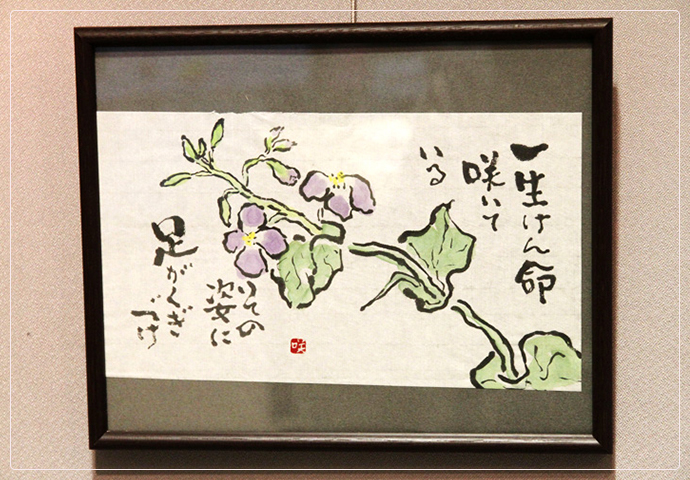 一生けん命
咲いて
いる
その
姿に
足がくぎ
づけ
咲